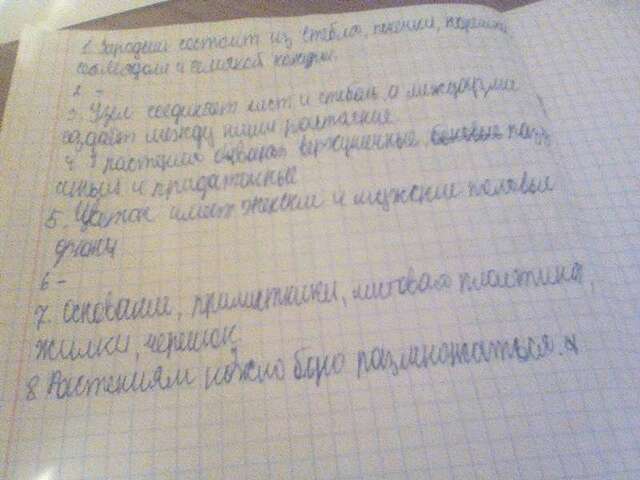 1. Зародыш состоит из стебля, почечки, корешка
семядоли и семякой кожуры.
2 -
3. Узел соединяет лист и стебель, а междоузлие
создаёт между ними растаяние
4. У растения бывают верхушечные боковые пазу
шные и придаточные
5. Цветок имеет женские и мужские половые
органы
6 -
7. Основание, прилистники, листовая пластина,
жилки, черешок
8 Растениям нужно было размножаться.